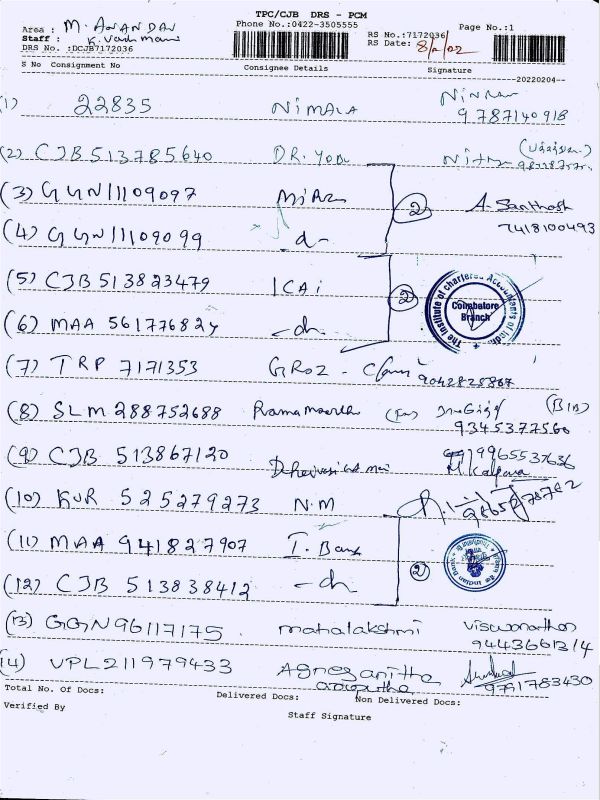 TPC/CJB DRS - PCM
Area : M. ANANDAN Phone No:0422-3505555 RS No.:7172036 Page No.:1
Staff : K. Vadi mani RS Date: 8/2/22
DRS No. :DCJB7172036
S No Consignment No Consignee Details Signature
20220204
(1) 22835 NiMALA
9787140918
(2) CJB 513785640 DR.
(3) GGN11109097 A. Santhosh
(4) GGN11109099 - do - 7418100493
(5) CJB 513823479 ICAi
The Institute of chartered Accountants of India
Coimbatore
Branch
(6) MAA 561776824 - do -
(7) TRP 7171353 GROZ - 9042828867
(8) SLM 288752688 Ramamoorthy
9345377560
(9) CJB 513867120 9965537636
M. Kalpana
(10) KUR 525279273 N.M
(11) MAA 941827907 I. Bank
(12) CJB 513838412 - do -
(13) GGN96117175 mahalakshmi viswanathan
9443661314
(14) VPL211979433 Agnes anitha
9791783430
Total No. of Docs: Delivered Docs: Non Delivered Docs:
Verified By
Staff Signature